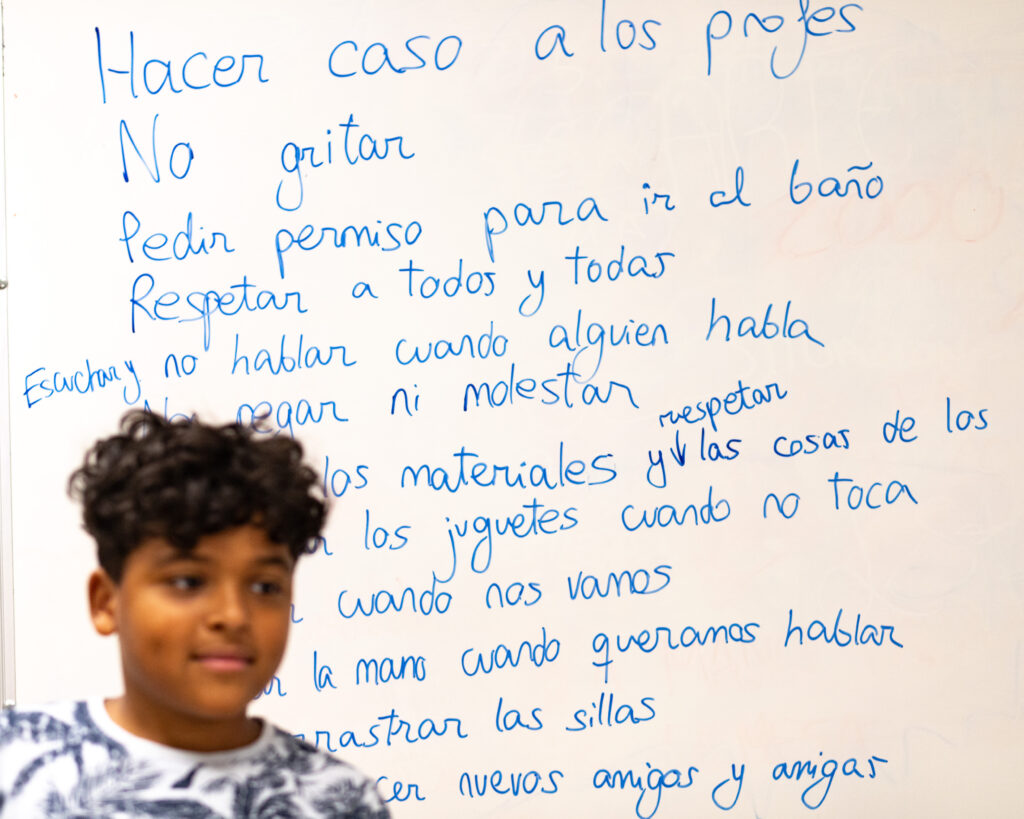 Hacer caso a los profes
No gritar
Pedir permiso para ir al baño
Respetar a todos y todas
Escuchar y no hablar cuando alguien habla
No pegar ni molestar
respetar
los materiales y ↓ las cosas de los
los juguetes cuando no toca
cuando nos vamos
la mano cuando queramos hablar
rrastrar las sillas
cer nuevos amigos y amigas